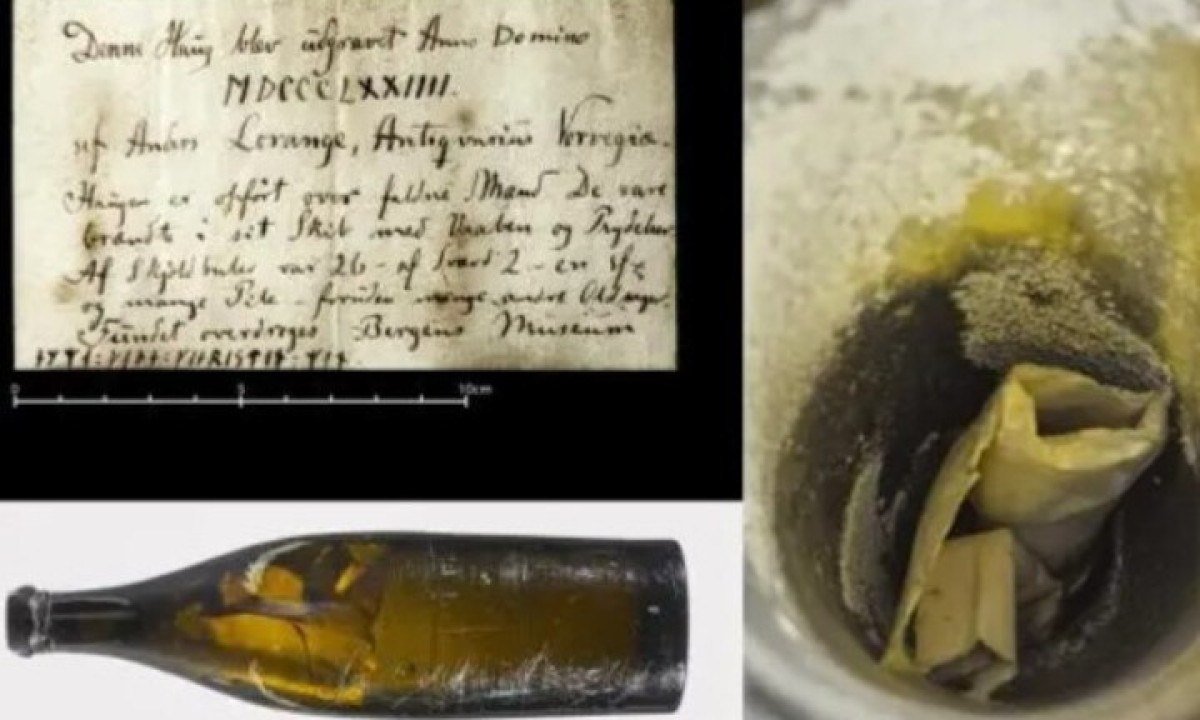 Denne Haug blev udgravet Anno Domino
MDCCCLXXIIII.
af Anders Lorange, Antiqvarius Norvegia.
Haugen er opført over faldne Mænd De vare
brændt i sit Skib med Vaaben og Prydelser
Af Skjoldbuler var 26 - af Sverd 2 - en
og mange Pile - foruden mange andre Oldsager.
Fundet overdroges Bergens Museum
0 5 10cm